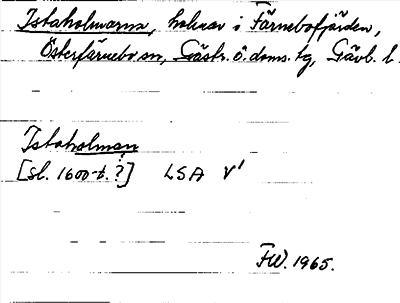 Istaholmarna, holmar i Färnebofjärden,
Österfärnebo sn, Gästr. ö. doms. tg, Gävl. l.
Istaholman
[sl. 1600-t.?] LSA V1
FW. 1965.